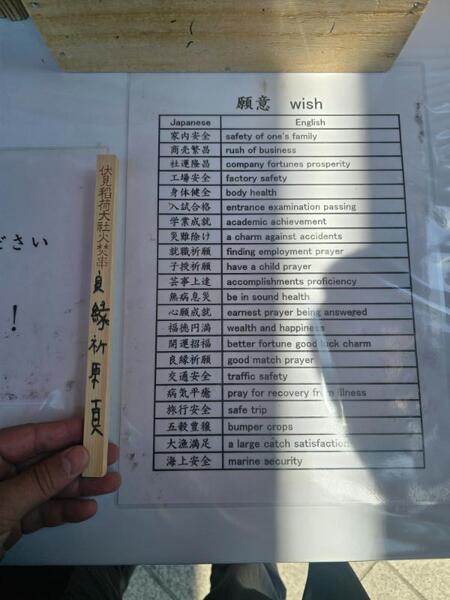 願意 wish
Japanese English
家内安全 safety of one's family
商売繁昌 rush of business
社運隆昌 company fortunes prosperity
工場安全 factory safety
身体健全 body health
入試合格 entrance examination passing
学業成就 academic achievement
災難除け a charm against accidents
就職祈願 finding employment prayer
子授祈願 have a child prayer
芸事上達 accomplishments proficiency
無病息災 be in sound health
心願成就 earnest prayer being answered
福徳円満 wealth and happiness
開運招福 better fortune good luck charm
良縁祈願 good match prayer
交通安全 traffic safety
病気平癒 pray for recovery from illness
旅行安全 safe trip
五穀豊穣 bumper crops
大漁満足 a large catch satisfaction
海上安全 marine security
伏見稲荷大社火焚串
良縁祈願
ださい
!